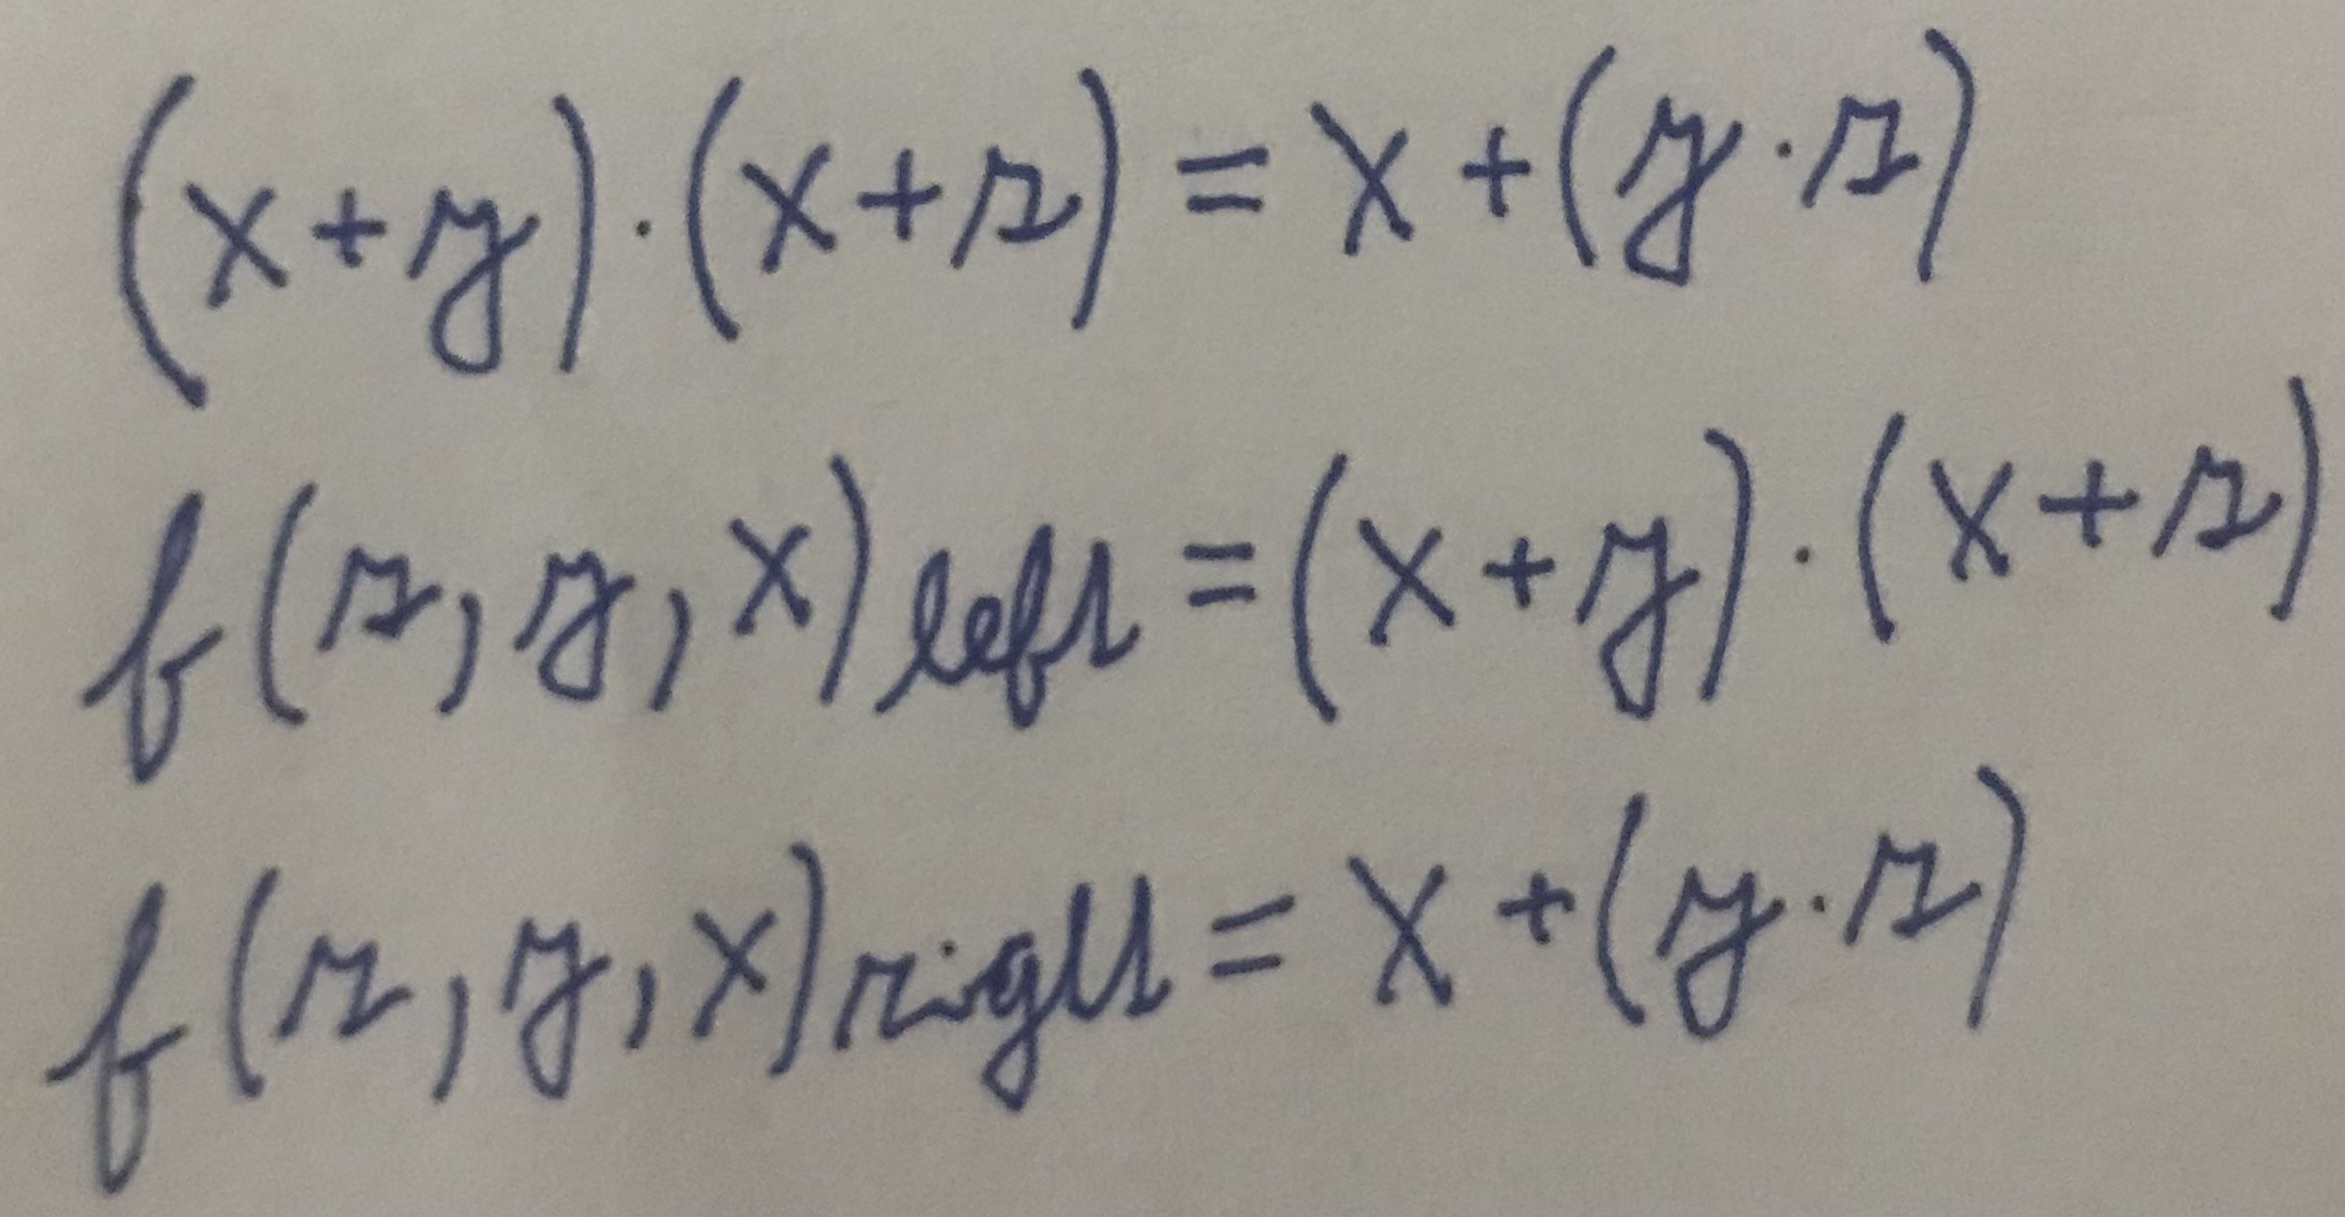 (x+y)·(x+z)=x+(y·z)
f(z,y,x)left=(x+y)·(x+z)
f(z,y,x)right=x+(y·z)